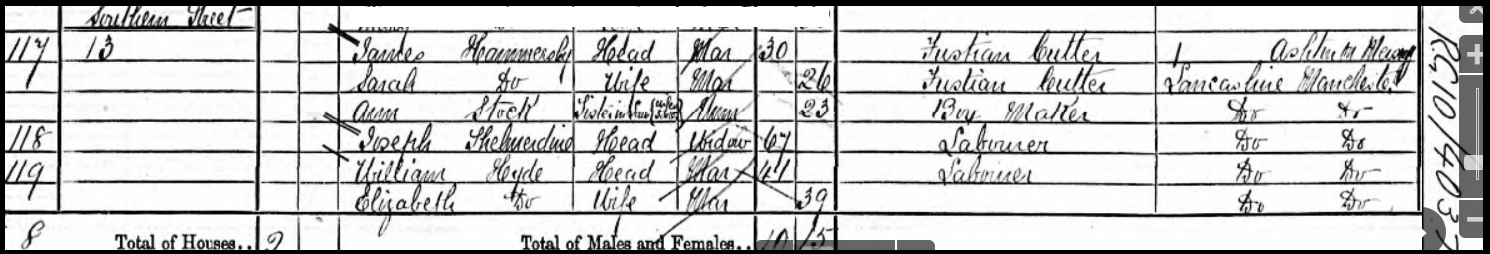 Southern Street
117 13 James Hammersby Head Mar 30 Fustian Cutter Ashton
Sarah Do Wife Mar 26 Fustian Cutter Lancashire Manchester
Ann Stock Sister in Law Unm 23 Box Maker Do Do
118 Joseph Shelmerdine Head Widow 67 Labourer Do Do
119 William Hyde Head Mar 44 Labourer Do Do
Elizabeth Do Wife Mar 39 Do Do
8 Total of Houses.. 2 Total of Males and Females.. 10 15
RG10/4037